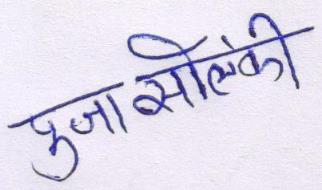 पुजा सोलंकी